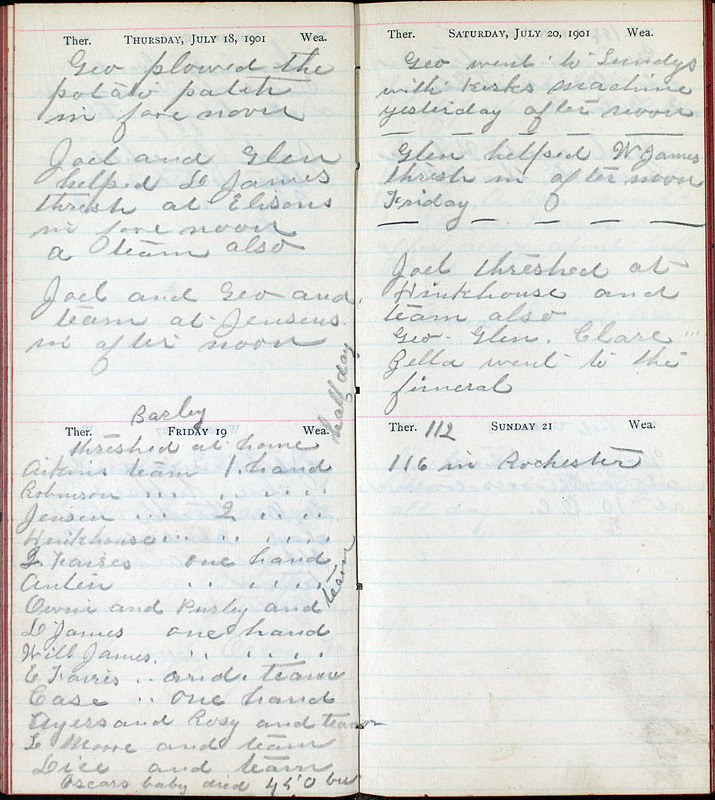 Ther. THURSDAY, JULY 18, 1901 Wea.
Geo plowed the
potato patch
in fore noon
Joel and Glen
helped L James
thresh at Elisons
in fore noon
a team also
Joel and Geo and
team at Jensens
in after noon
Barley
half day
Ther. FRIDAY 19 Wea.
threshed at home
Aikins team 1 hand
Robinson " " " . . . .
Jensen . . 2 . . .
Hinkhouse " " . . . .
L Faires one hand
Antin . . . . . .
Owen and Pursly and team
L James one hand
Will James . . . . .
E Faires . . and team
Case . . one hand
Ayers and Rosy and team
L Moore and team
Dice and team
Oscars baby died 450 bu
Ther. SATURDAY, JULY 20, 1901 Wea.
Geo went to Lundys
with Kirks machine
yesterday after noon
Glen helped W James
thresh in after noon
Friday
Joel threshed at
Hinkhouse and
team also
Geo. Glen. Clare
Zella went to the
funeral
Ther. 112 SUNDAY 21 Wea.
116 in Rochester